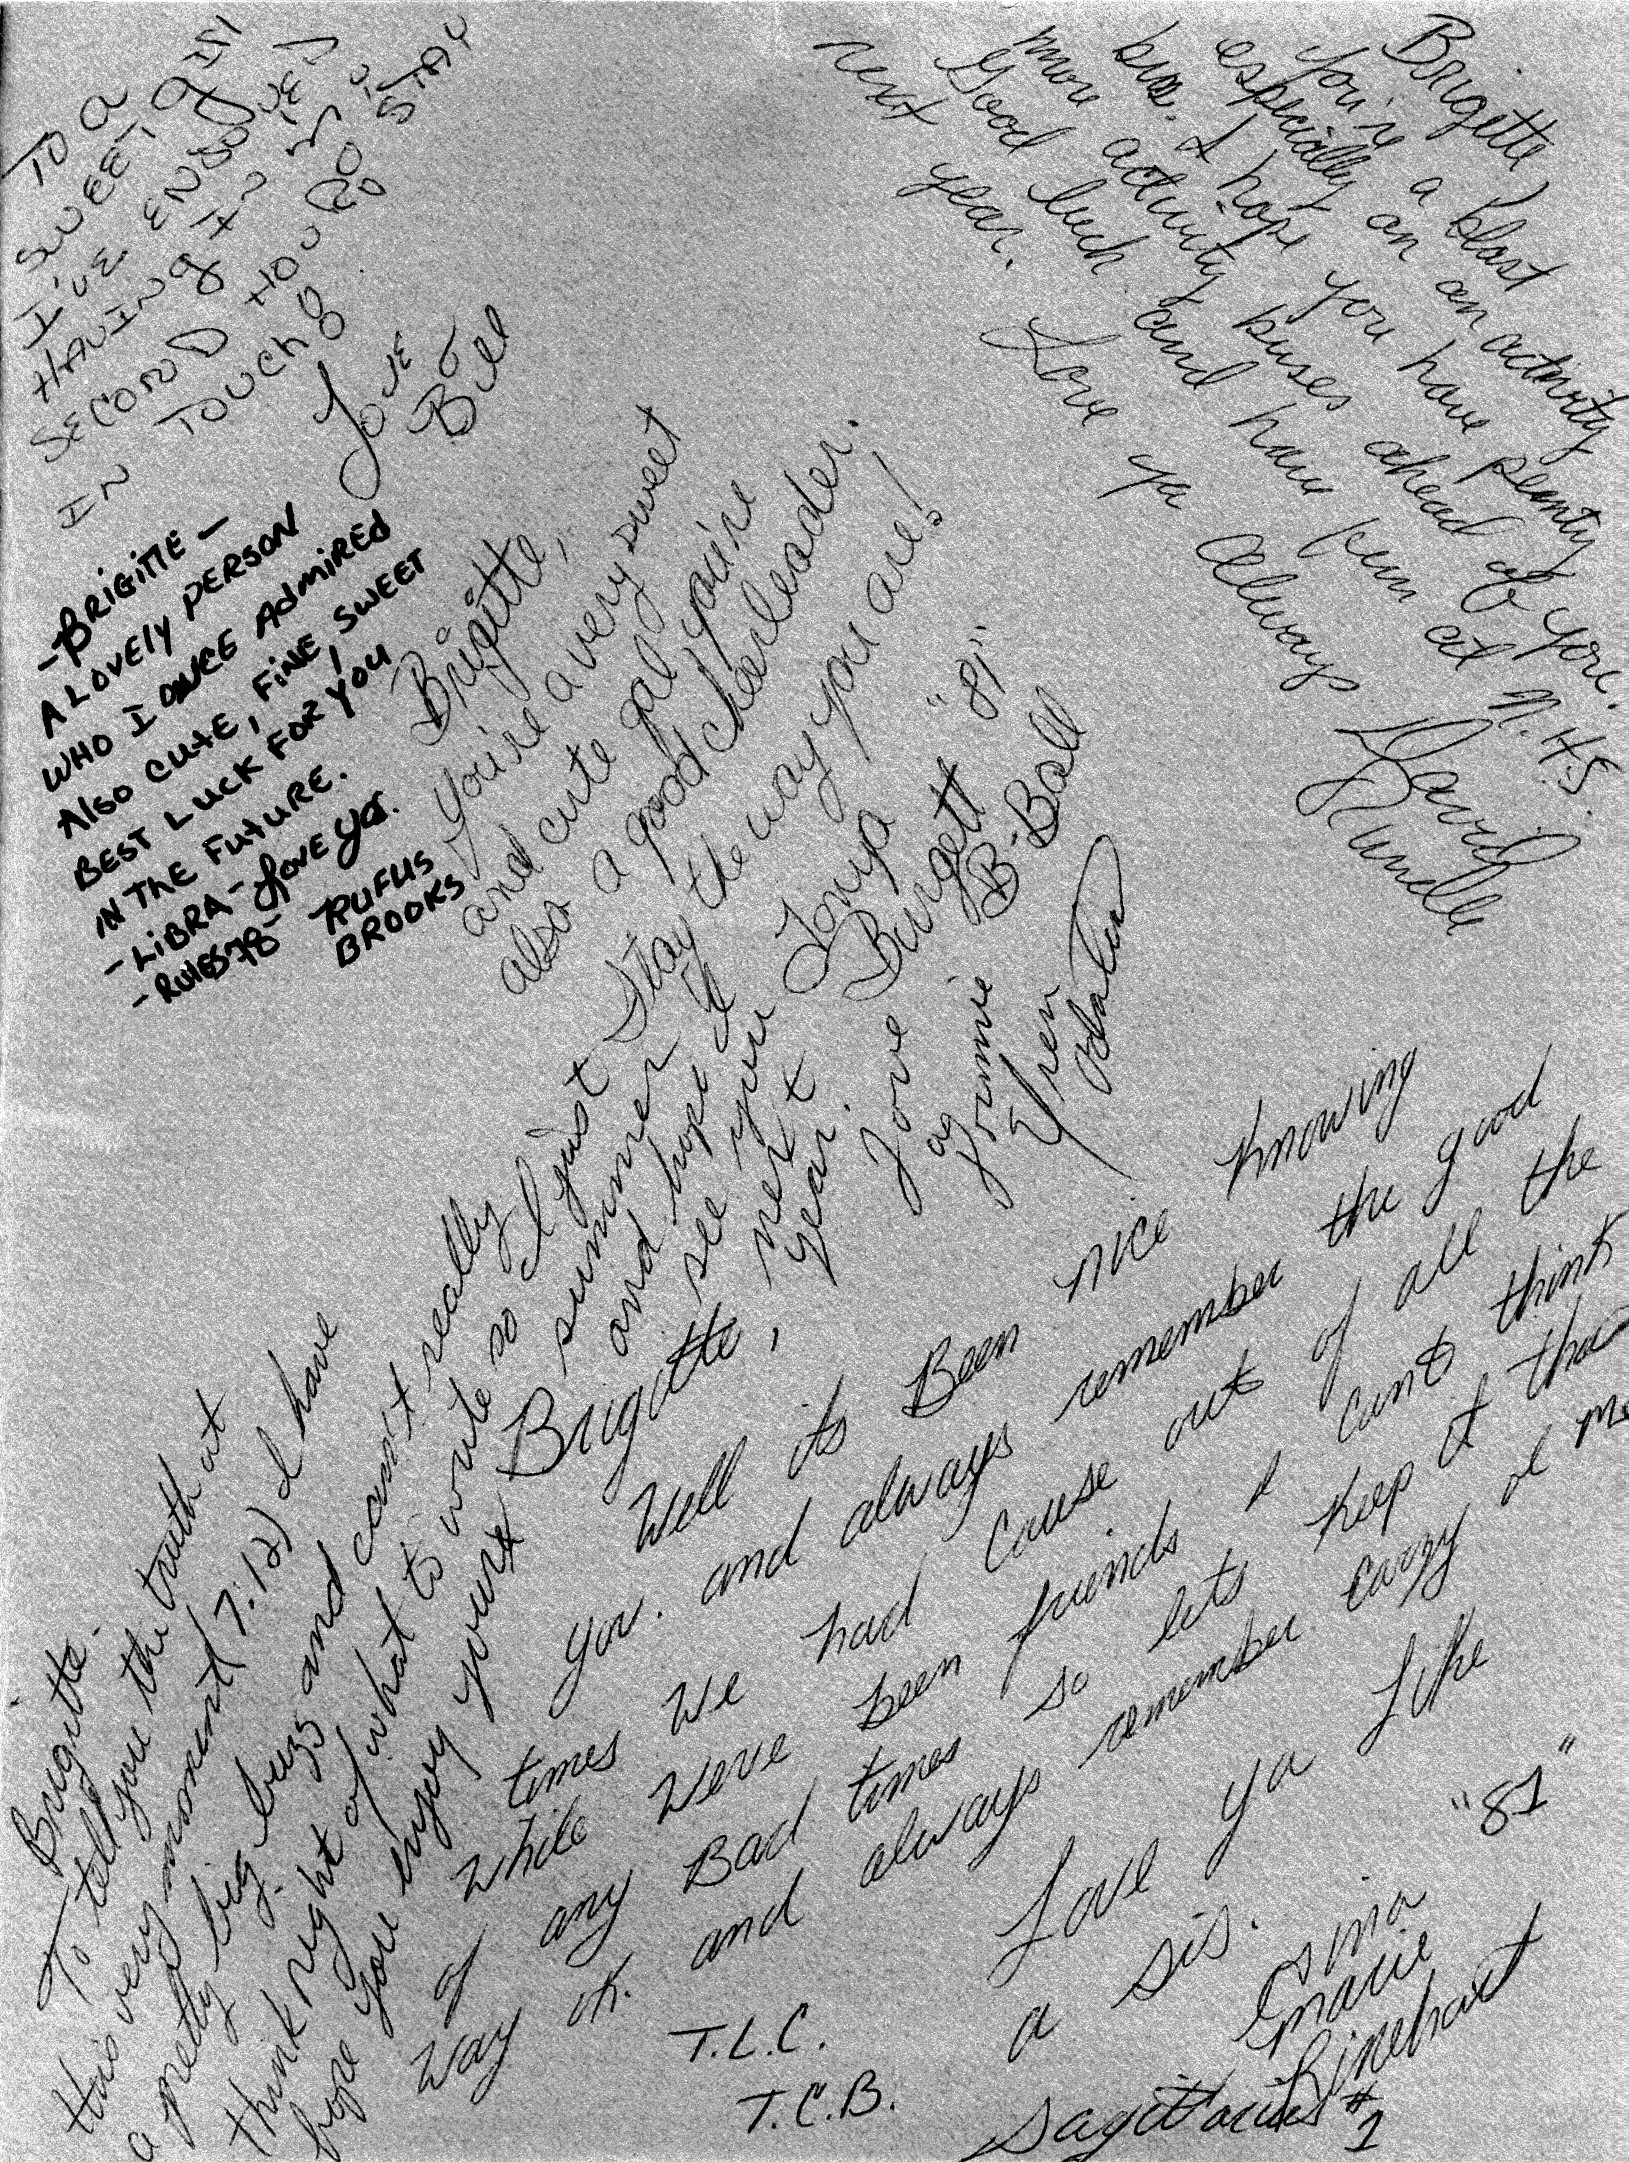 TO A
SWEET gIRl
I'VE ENJOYED
HAVINg
SECOND HOUR
SO STAY
IN TOUCH
Love
Bill
Brigette,
You're a blast
especially on an activity
bus. I hope you have plenty
more activity buses ahead of you.
Good luck and have fun at N.H.S.
next year.
Love ya
Always
David
Runelle
-BRIGITTE-
A LOVELY PERSON
WHO I ONCE ADMIRED
ALSO CUTE, FINE, SWEET
BEST LUCK FOR YOU
IN THE FUTURE.
-LIBRA- Love ya.
-RULES 78- RUFUS
BROOKS
Brigitte,
You're a very sweet
and cute gal you're
also a good cheerleader.
Stay the way you are!
Tonya "81"
Burgett
B-Ball
Brigette.
To tell you the truth at
this very moment (7:12) I have
a pretty big buzz and can't really
think right of what to write so I just
hope you enjoy yours summer
and hope I
see you
next
year.
Love
Brigette,
Well its Been nice knowing
you. and always remember the good
times We had Cause out of all the
While Weve been friends I cant think
of any Bad times so lets keep it that
Way ok. and always remember cargy ol me
Love ya Like
a sis. "81"
T.L.C.
T.C.B.
Marie
Rinehart
Sagittarius #1